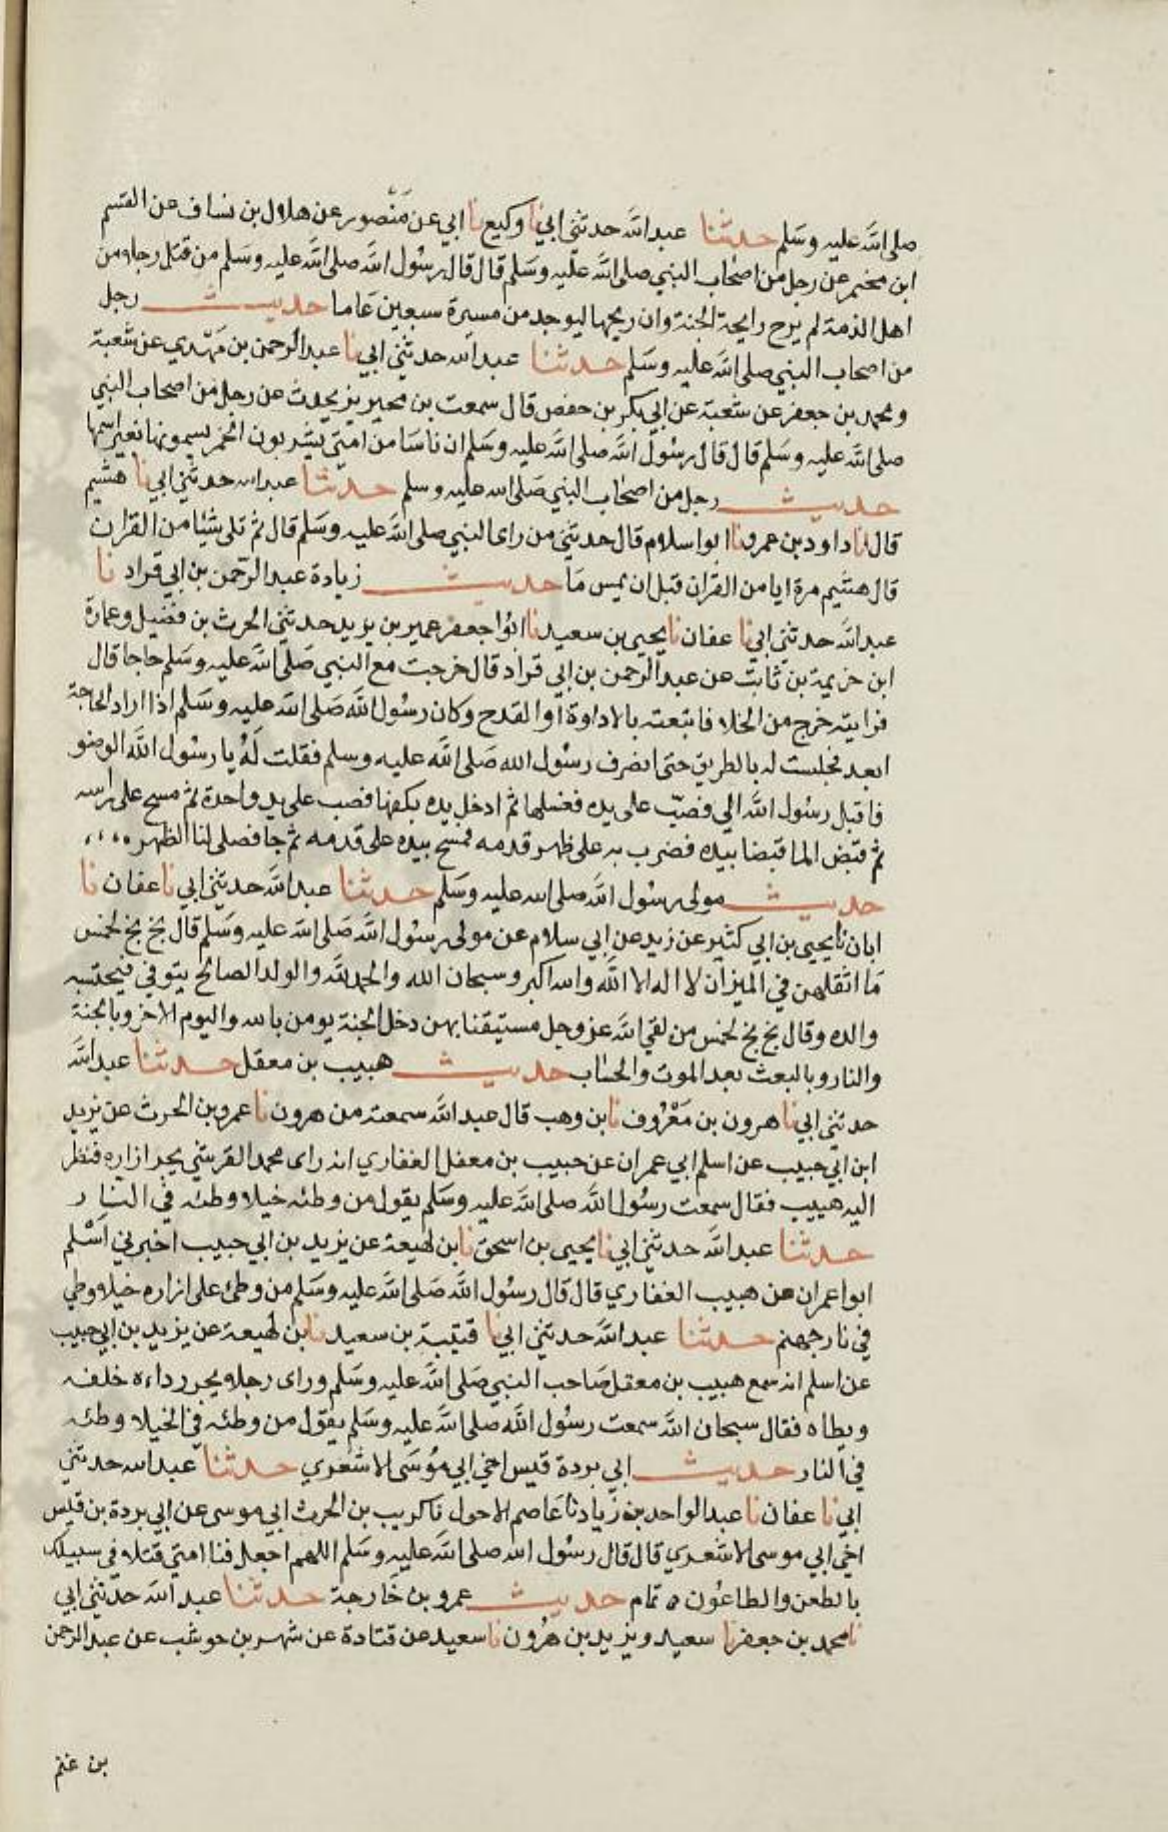 صلى الله عليه وسلم حدثنا عبدالله حدثني ابي نا وكيع نا ابي عن منصور عن هلال بن يساف عن القسم
ابن مخيمر عن رجل من اصحاب النبي صلى الله عليه وسلم قال قال رسول الله صلى الله عليه وسلم من قتل رجلا من
اهل الذمة لم يرح رايحة الجنة وان ريحها ليوجد من مسيرة سبعين عاما حديث رجل
من اصحاب النبي صلى الله عليه وسلم حدثنا عبدالله حدثني ابي نا عبدالرحمن بن مهدي عن شعبة
ومحمد بن جعفر عن شعبة عن ابي بكر بن حفص قال سمعت بن محيريز يحدث عن رجل من اصحاب النبي
صلى الله عليه وسلم قال قال رسول الله صلى الله عليه وسلم ان ناسا من امتي يشربون الخمر يسمونها بغير اسمها
حديث رجل من اصحاب النبي صلى الله عليه وسلم حدثنا عبدالله حدثني ابي نا هشيم
قال نا داود بن عمرو نا ابوا سلام قال حدثني من راى النبي صلى الله عليه وسلم قال ثم تلى شيئا من القران
قال هشيم مرة ايا من القران قبل ان يمس ما حديث زيادة عبدالرحمن بن ابي قراد نا
عبدالله حدثني ابي نا عفان نا يحيى بن سعيد نا ابوا جعفر عمير بن يزيد حدثني الحرث بن فضيل وعمارة
ابن خزيمة بن ثابت عن عبدالرحمن بن ابي قراد قال خرجت مع النبي صلى الله عليه وسلم حاجا قال
فرايته خرج من الخلا فاتبعته بالاداوة او القدح وكان رسول الله صلى الله عليه وسلم اذا اراد الحاجة
ابعد فجلست له بالطريق حتى انصرف رسول الله صلى الله عليه وسلم فقلت له يا رسول الله الوضو
فاقبل رسول الله الي فصب على يده فغسلها ثم ادخل يده بكفها فصب على يد واحدة ثم مسح على راسه
ثم قبض الما قبضا بيده فضرب به على ظهر قدمه فمسح بيده على قدمه ثم جا فصلى لنا الظهر
حديث مولى رسول الله صلى الله عليه وسلم حدثنا عبدالله حدثني ابي نا عفان نا
ابان نا يحيى بن ابي كثير عن زيد عن ابي سلام عن مولى رسول الله صلى الله عليه وسلم قال بخ بخ لخمس
ما اثقلهن في الميزان لا اله الا الله والله اكبر وسبحان الله والحمدلله والولد الصالح يتوفي فيحتسبه
والده وقال بخ بخ لخمس من لقي الله عز وجل مستيقنا بهن دخل الجنة يومن بالله واليوم الاخر وبالجنة
والنار وبالبعث بعد الموت والحساب حديث هبيب بن معقل حدثنا عبدالله
حدثني ابي نا هرون بن معروف نا بن وهب قال عبدالله سمعته من هرون نا عمرو بن الحرث عن يزيد
ابن ابي حبيب عن اسلم ابي عمران عن حبيب بن معفل الغفاري انه راى محمد القرشي يجر ازاره فنظر
اليه هبيب فقال سمعت رسول الله صلى الله عليه وسلم يقول من وطئه خيلا وطئه في النار
حدثنا عبدالله حدثني ابي نا يحيى بن اسحق نا بن لهيعة عن يزيد بن ابي حبيب اخبرني اسلم
ابوا عمران عن هبيب الغفاري قال قال رسول الله صلى الله عليه وسلم من وطئ على ازاره خيلا وطي
في نار جهنم حدثنا عبدالله حدثني ابي نا قتيبة بن سعيد نا بن لهيعة عن يزيد بن ابي حبيب
عن اسلم انه سمع هبيب بن معقل صاحب النبي صلى الله عليه وسلم وراى رجلا يجر رداءه خلفه
ويطاه فقال سبحان الله سمعت رسول الله صلى الله عليه وسلم يقول من وطئه في الخيلا وطئه
في النار حديث ابي بردة قيس اخي ابي موسى الاشعري حدثنا عبدالله حدثني
ابي نا عفان نا عبدالواحد بن زياد نا عاصم الاحول نا كريب بن الحرث ابي موسى عن ابي بردة بن قيس
اخي ابي موسى الاشعري قال قال رسول الله صلى الله عليه وسلم اللهم اجعل فنا امتي قتلا في سبيلك
بالطعن والطاعون تمام حديث عمرو بن خارجة حدثنا عبدالله حدثني ابي
نا محمد بن جعفر نا سعيد ويزيد بن هرون نا سعيد عن قتادة عن شهر بن حوشب عن عبدالرحمن
بن غنم